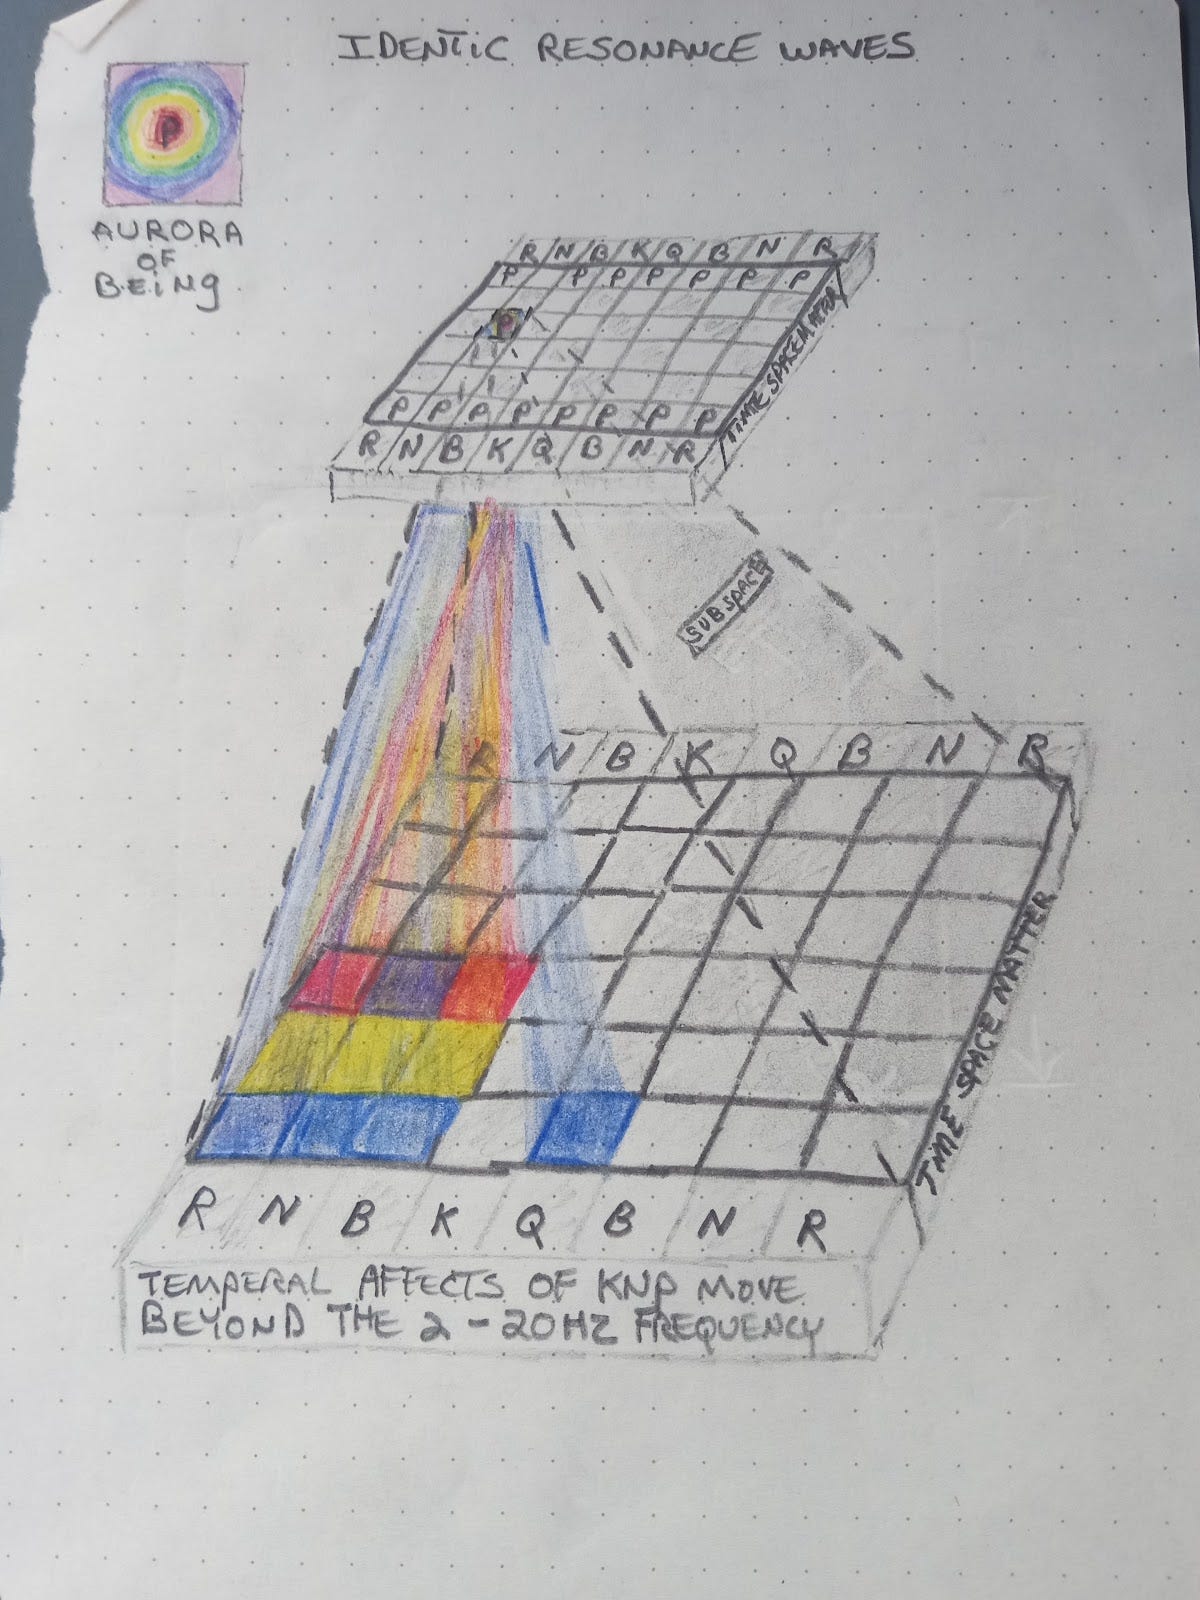 IDENTIC RESONANCE WAVES
P
AURORA
OF
BEING
R N B K Q B N R
P P P P P P P
P
P P P P P P P P
R N B K Q B N R
TIME SPACE MATTER
SUBSPACE
R N B K Q B N R
TIME SPACE MATTER
R N B K Q B N R
TEMPERAL AFFECTS OF KNP MOVE
BEYOND THE 2-20HZ FREQUENCY